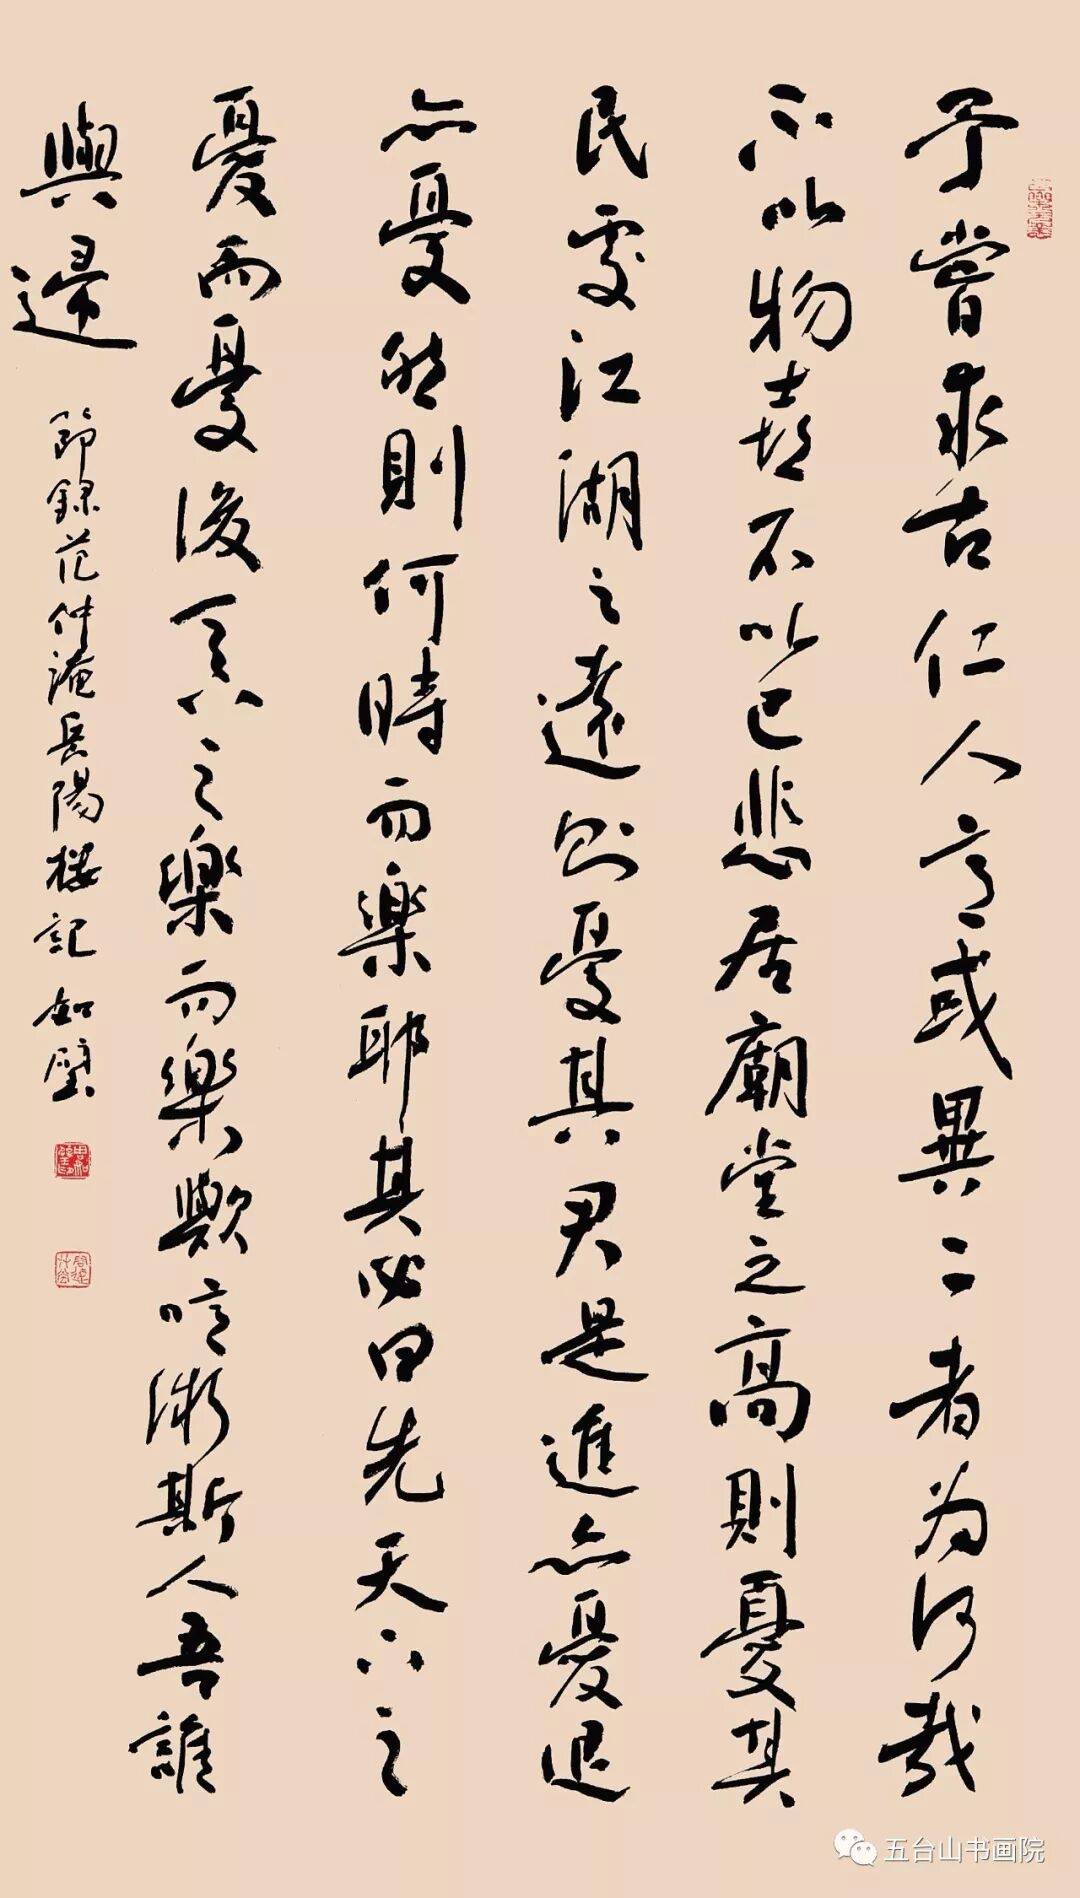 予嘗求古仁人意或異二者为何哉
不以物喜不以己悲居廟堂之高則憂其
民處江湖之遠則憂其君是進亦憂退
亦憂然則何時而樂耶其必曰先天下之
憂而憂後天下之樂而樂歟噫微斯人吾誰
與歸
節錄范仲淹岳陽楼記 如璧
五台山书画院